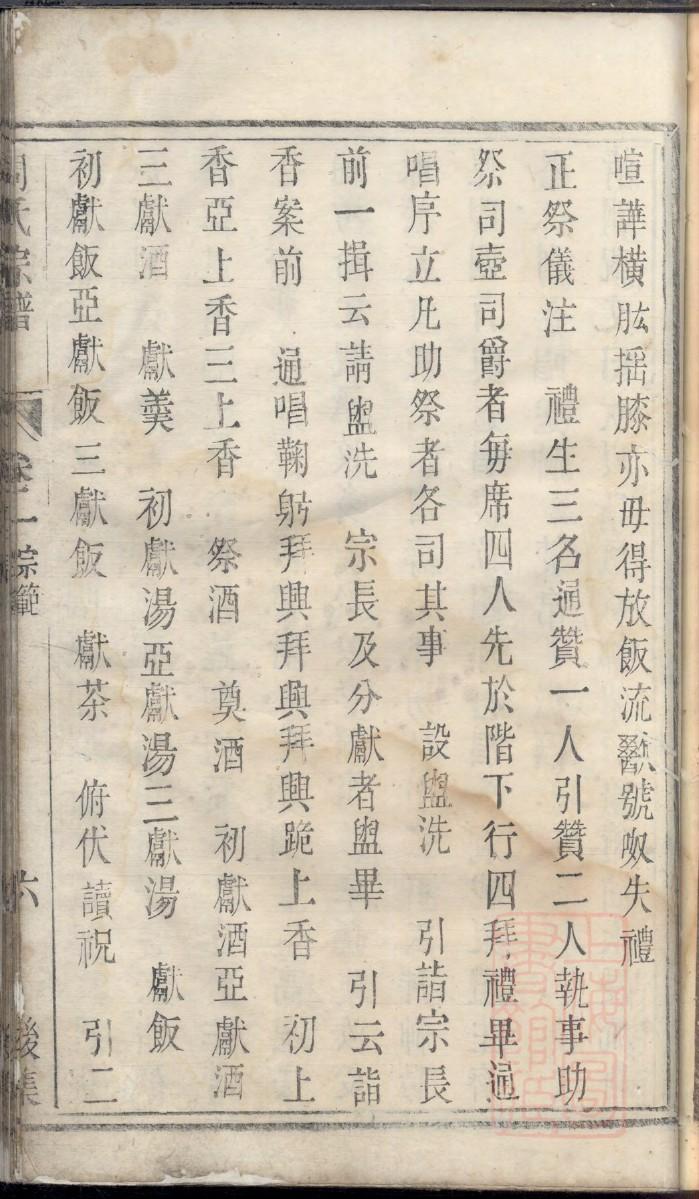 喧譁橫肱揺膝亦毋得放飯流歠號呶失禮
正祭儀注　禮生三名通贊一人引贊二人執事助
祭司壺司爵者每席四人先於階下行四拜禮畢通
唱序立凡助祭者各司其事　設盥洗　引詣宗長
前一揖云請盥洗　宗長及分獻者盥畢　引云詣
香案前　通唱鞠躬拜興拜興拜興跪上香　初上
香亞上香三上香　祭酒　奠酒　初獻酒亞獻酒
三獻酒　獻羹　初獻湯亞獻湯三獻湯　獻飯
初獻飯亞獻飯三獻飯　獻茶　俯伏讀祝　引二
氏宗譜　卷一　宗範　六　後集